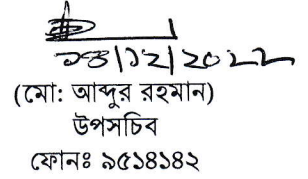 ১৪/১২/২০২২
(মো: আব্দুর রহমান)
উপসচিব
ফোনঃ ৯৫১৪১৪২